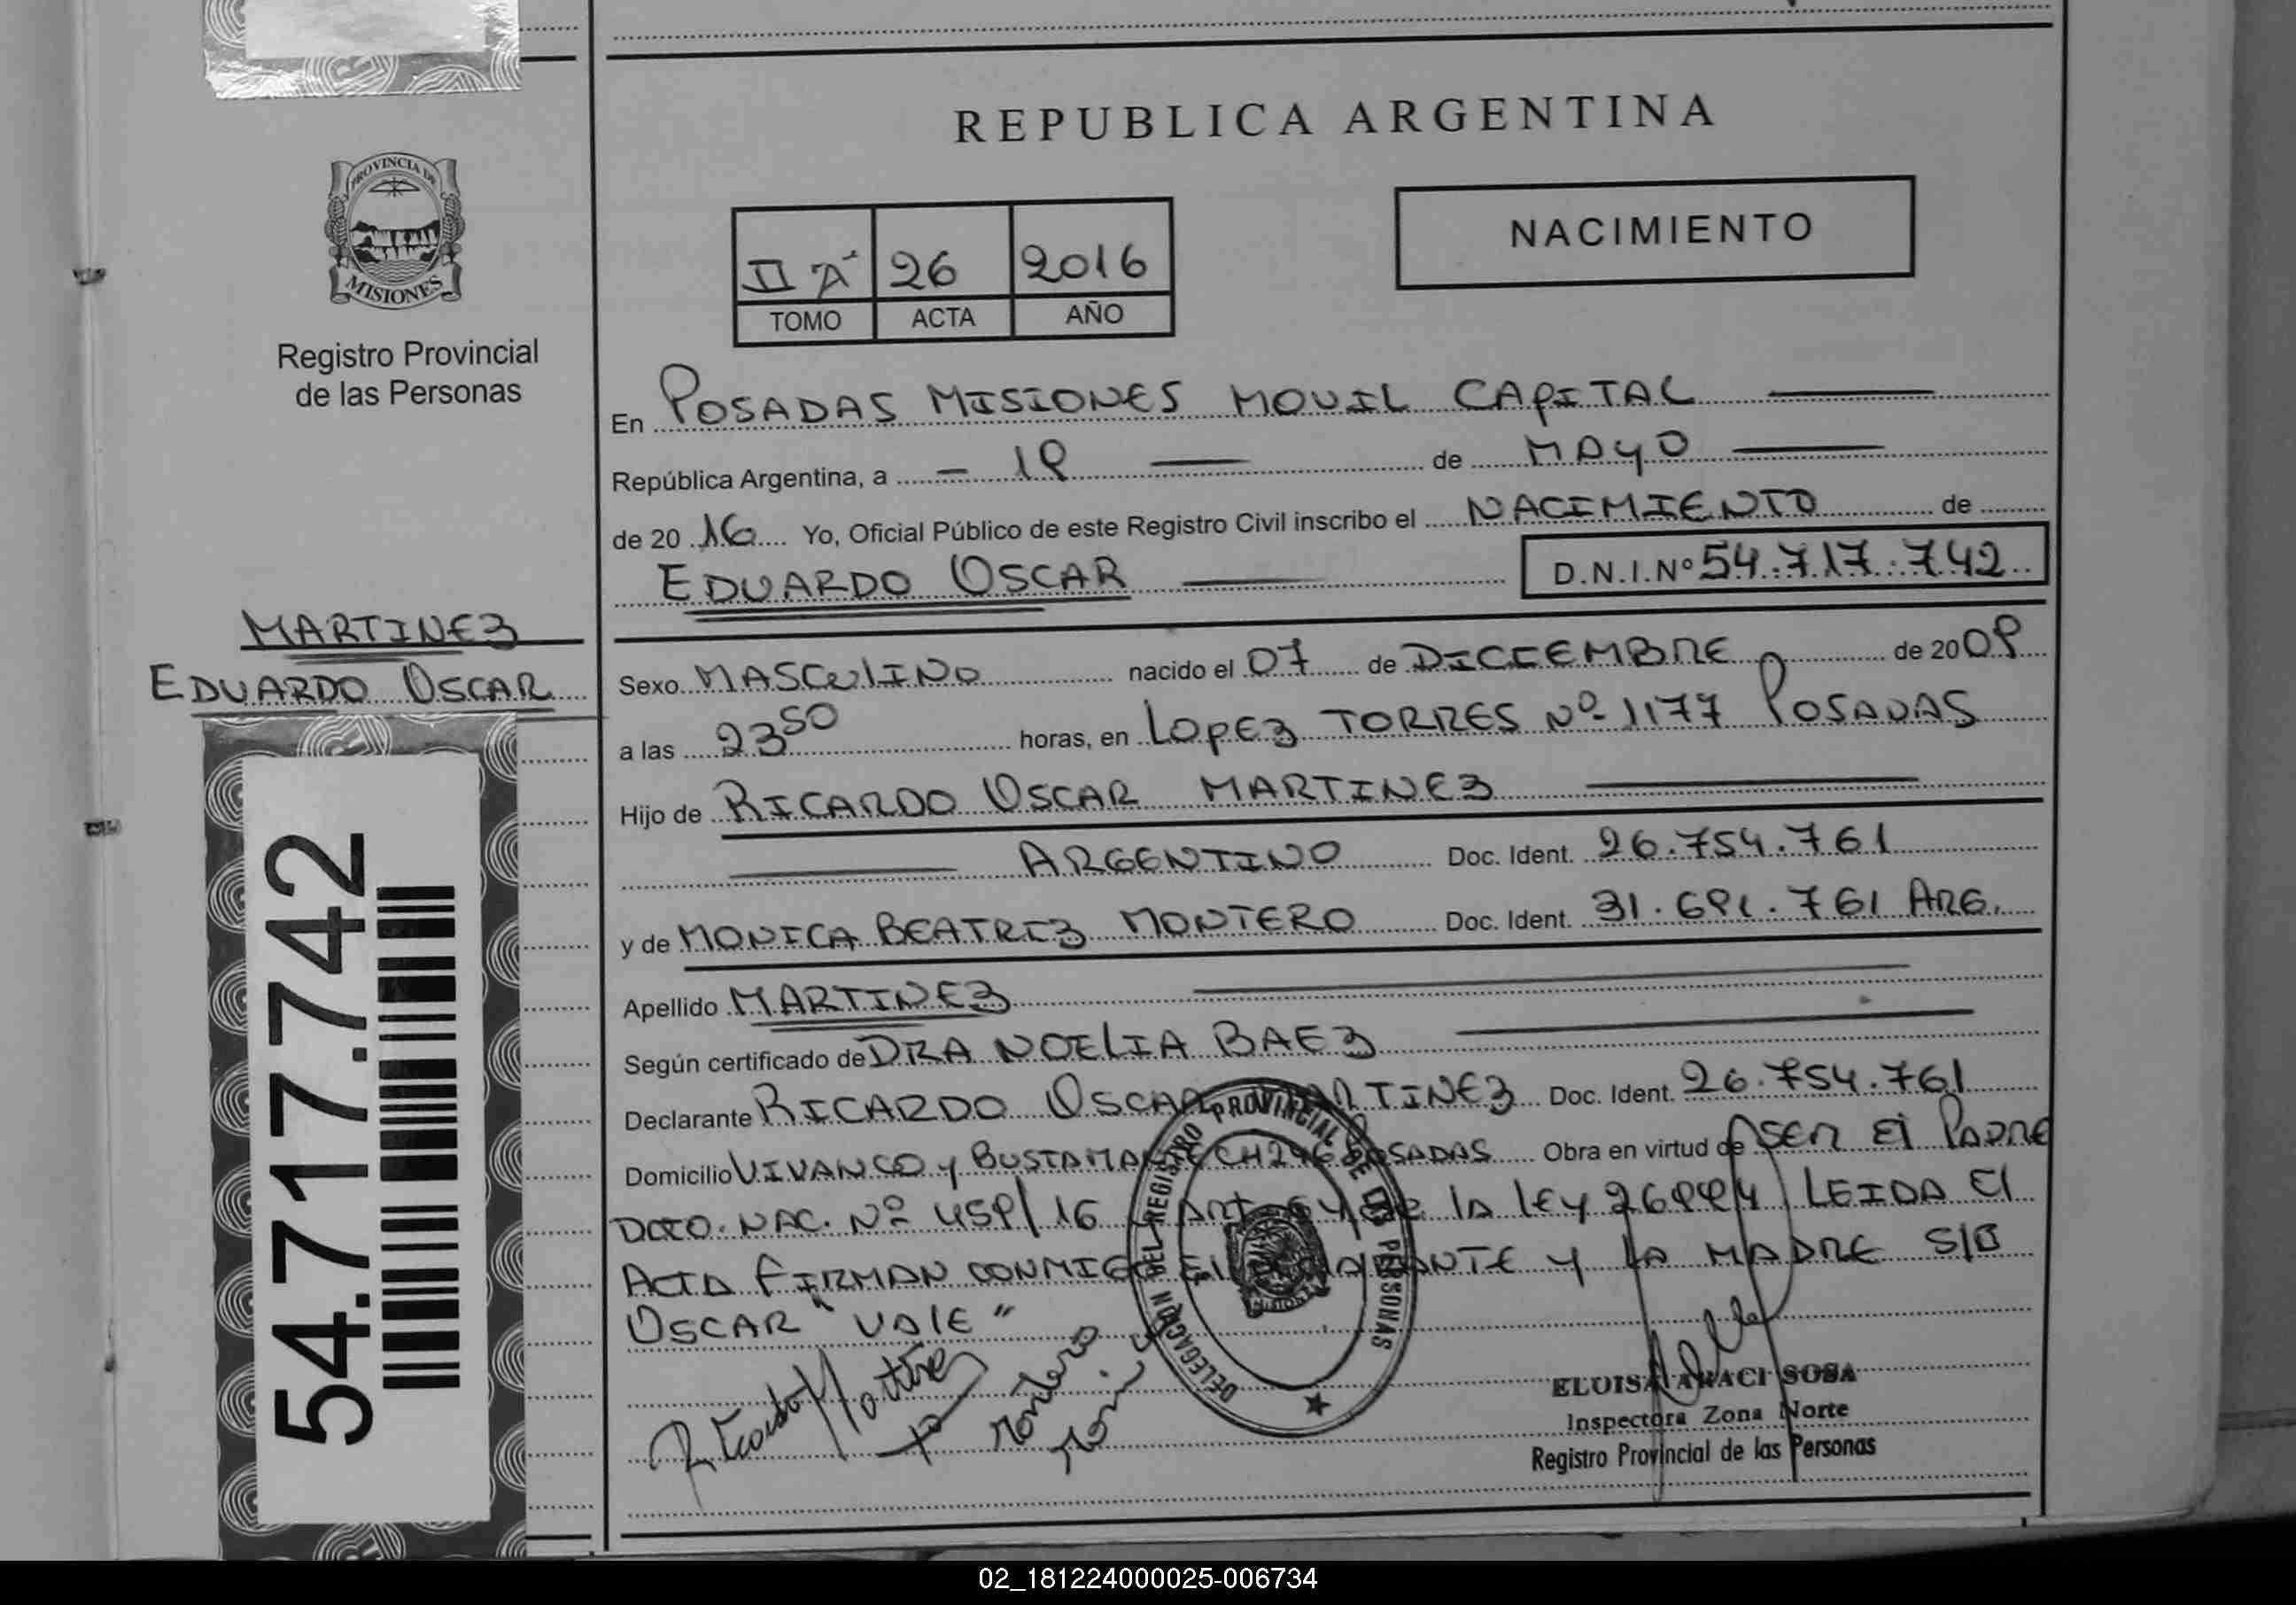 REPUBLICA ARGENTINA
PROVINCIA DE
MISIONES
Registro Provincial
de las Personas
NACIMIENTO
II A 26 2016
TOMO ACTA AÑO
En POSADAS MISIONES MOVIL CAPITAL
República Argentina, a - 19 — de MAYO
de 20 16 Yo, Oficial Público de este Registro Civil inscribo el NACIMIENTO de
EDUARDO OSCAR D.N.I.Nº 54.717.742
MARTINEZ
EDUARDO OSCAR
54.717.742
Sexo MASCULINO nacido el 07 de DICIEMBRE de 20 09
a las 23 50 horas, en LOPEZ TORRES Nº 1177 POSADAS
Hijo de RICARDO OSCAR MARTINEZ
ARGENTINO Doc. Ident. 26.754.761
y de MONICA BEATRIZ MONTERO Doc. Ident. 31.691.761 ARG.
Apellido MARTINEZ
Según certificado de DRA NOELIA BAEZ
Declarante RICARDO OSCAR MARTINEZ Doc. Ident. 26.754.761
Domicilio VIVANCO y BUSTAMANTE CH 246 POSADAS Obra en virtud de SER El PADRE
DCTO. NAC. Nº 459/16 y ART 64 de lA lEy 26994 LEIDA El
ACTA FIRMAN CONMIGO El DECLARANTE y LA MADRE S/B
OSCAR "VALE"
Ricardo Martinez
Montero
Moni
DELEGACION DEL REGISTRO PROVINCIAL DE LAS PERSONAS
MISIONES
ELOISA ARACI SOSA
Inspectora Zona Norte
Registro Provincial de las Personas
02_181224000025-006734